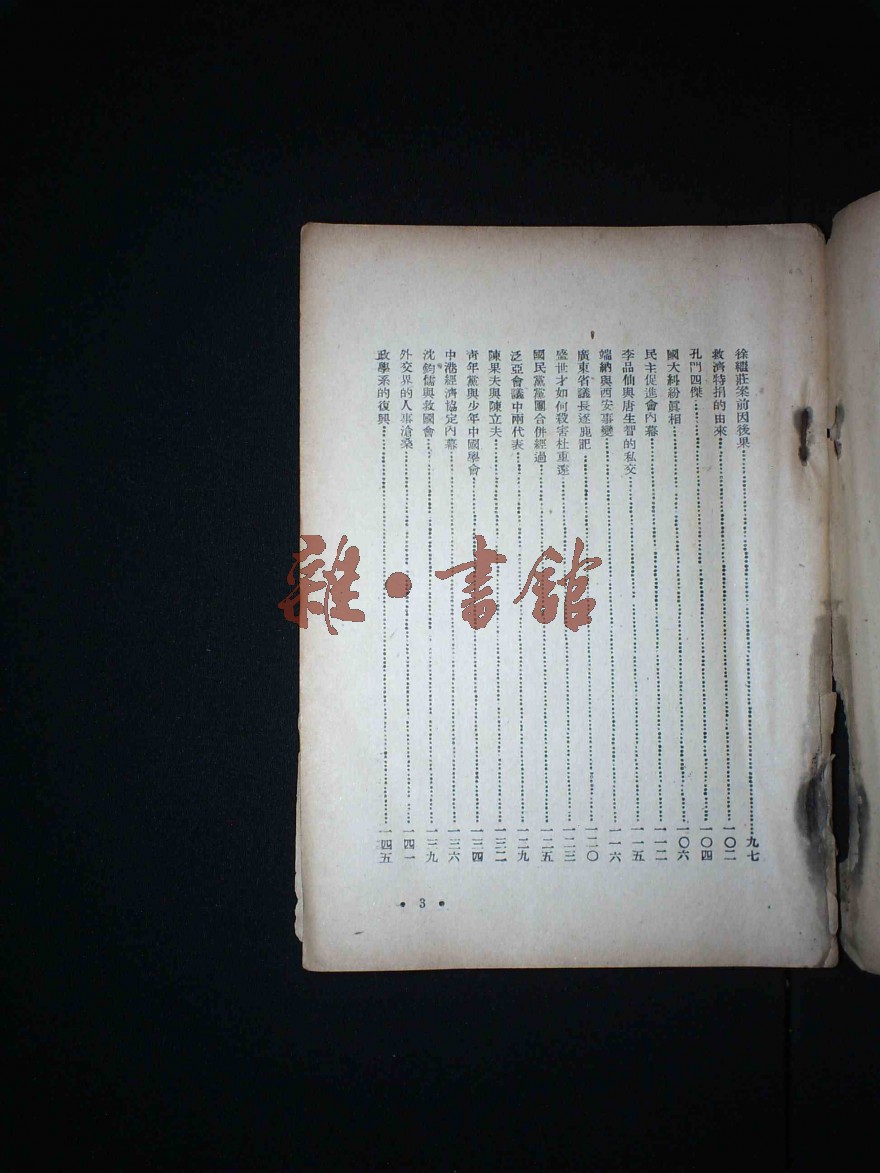 徐繼莊案前因後果……九七
救濟特捐的由來……一〇二
孔門四傑……一〇四
國大糾紛眞相……一〇六
民主促進會內幕……一一二
李品仙與唐生智的私交……一一五
端納與西安事變……一一六
廣東省議長逐鹿記……一二〇
盛世才如何殺害杜重遠……一二三
國民黨黨團合併經過……一二五
泛亞會議中兩代表……一二九
陳果夫與陳立夫……一三二
靑年黨與少年中國學會……一三四
中港經濟協定內幕……一三六
沈鈞儒與救國會……一三九
外交界的人事滄桑……一四一
政學系的復興……一四五
• 3 •
雜·書館